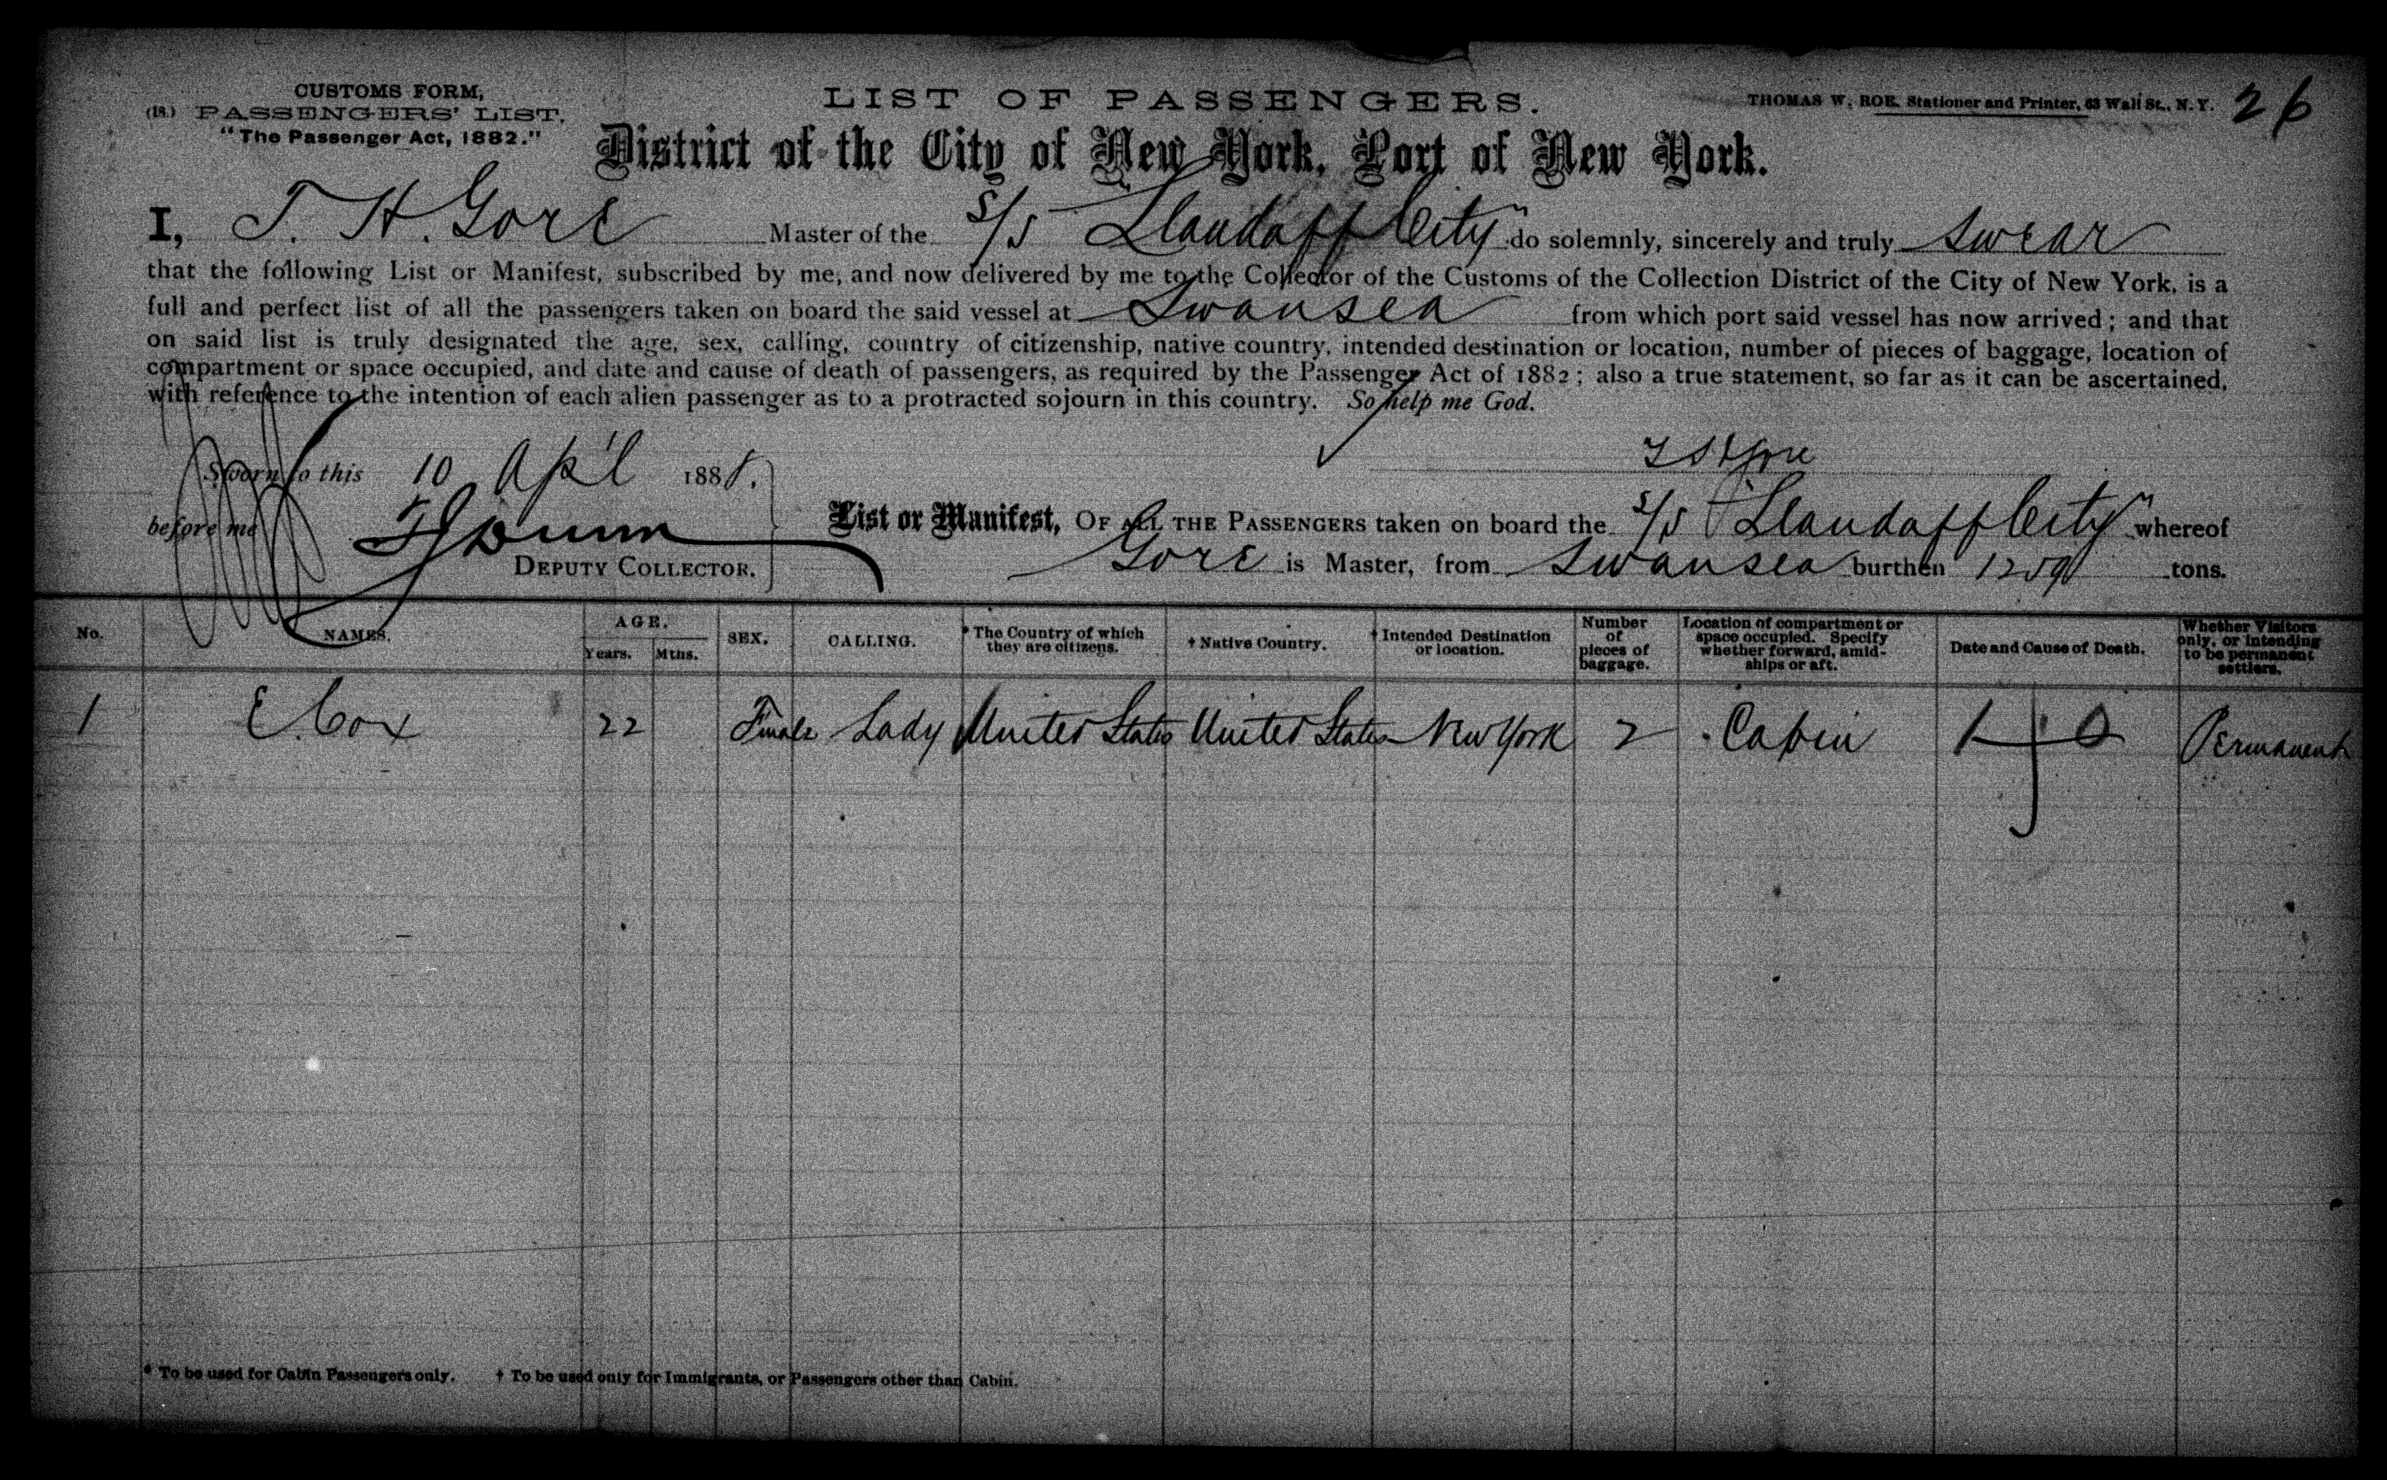 CUSTOMS FORM,
(18.) PASSENGERS' LIST.
"The Passenger Act, 1882."
LIST OF PASSENGERS.
THOMAS W. ROE, Stationer and Printer, 63 Wall St., N. Y.
26
District of the City of New York, Port of New York.
I, T. H. Gore Master of the S/S Llandaff City" do solemnly, sincerely and truly swear
that the following List or Manifest, subscribed by me, and now delivered by me to the Collector of the Customs of the Collection District of the City of New York, is a
full and perfect list of all the passengers taken on board the said vessel at Swansea from which port said vessel has now arrived; and that
on said list is truly designated the age, sex, calling, country of citizenship, native country, intended destination or location, number of pieces of baggage, location of
compartment or space occupied, and date and cause of death of passengers, as required by the Passenger Act of 1882; also a true statement, so far as it can be ascertained,
with reference to the intention of each alien passenger as to a protracted sojourn in this country. So help me God.
Sworn to this 10 Apl 188
before me
DEPUTY COLLECTOR.
List or Manifest, OF ALL THE PASSENGERS taken on board the S/S "Llandaff City" whereof
Gore is Master, from Swansea burthen tons.
No. NAMES. AGE. Years. Mths. SEX. CALLING. * The Country of which they are citizens. † Native Country. † Intended Destination or location. Number of pieces of baggage. Location of compartment or space occupied. Specify whether forward, amidships or aft. Date and Cause of Death. Whether Visitors only, or intending to be permanent settlers.
1 E. Cox 22 Female Lady United States United States New York 2 Cabin Permanent
* To be used for Cabin Passengers only. † To be used only for Immigrants, or Passengers other than Cabin.